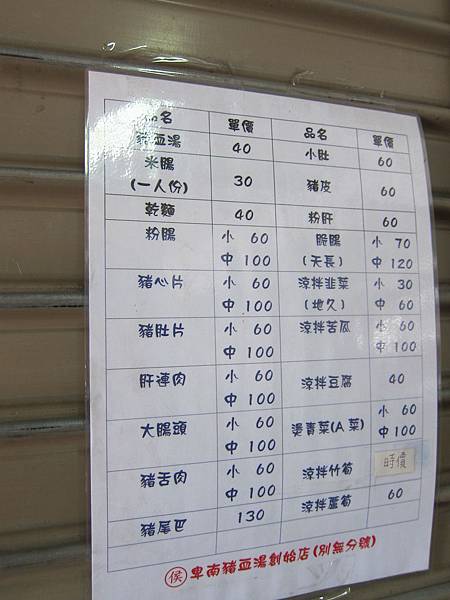 品名 單價 品名 單價
豬血湯 40 小肚 60
米腸
(一人份) 30 豬皮 60
乾麵 40 粉肝 60
粉腸 小 60 脆腸 小 70
中 100 (天長) 中 120
豬心片 小 60 涼拌韭菜 小 30
中 100 (地久) 中 60
豬肚片 小 60 涼拌苦瓜 小 60
中 100 中 100
肝連肉 小 60 涼拌豆腐 40
中 100
大腸頭 小 60 燙青菜(A菜) 小 60
中 100 中 100
豬舌肉 小 60 涼拌竹筍 時價
中 100
豬尾巴 130 涼拌蘆筍 60
侯 卑南豬血湯創始店(別無分號)